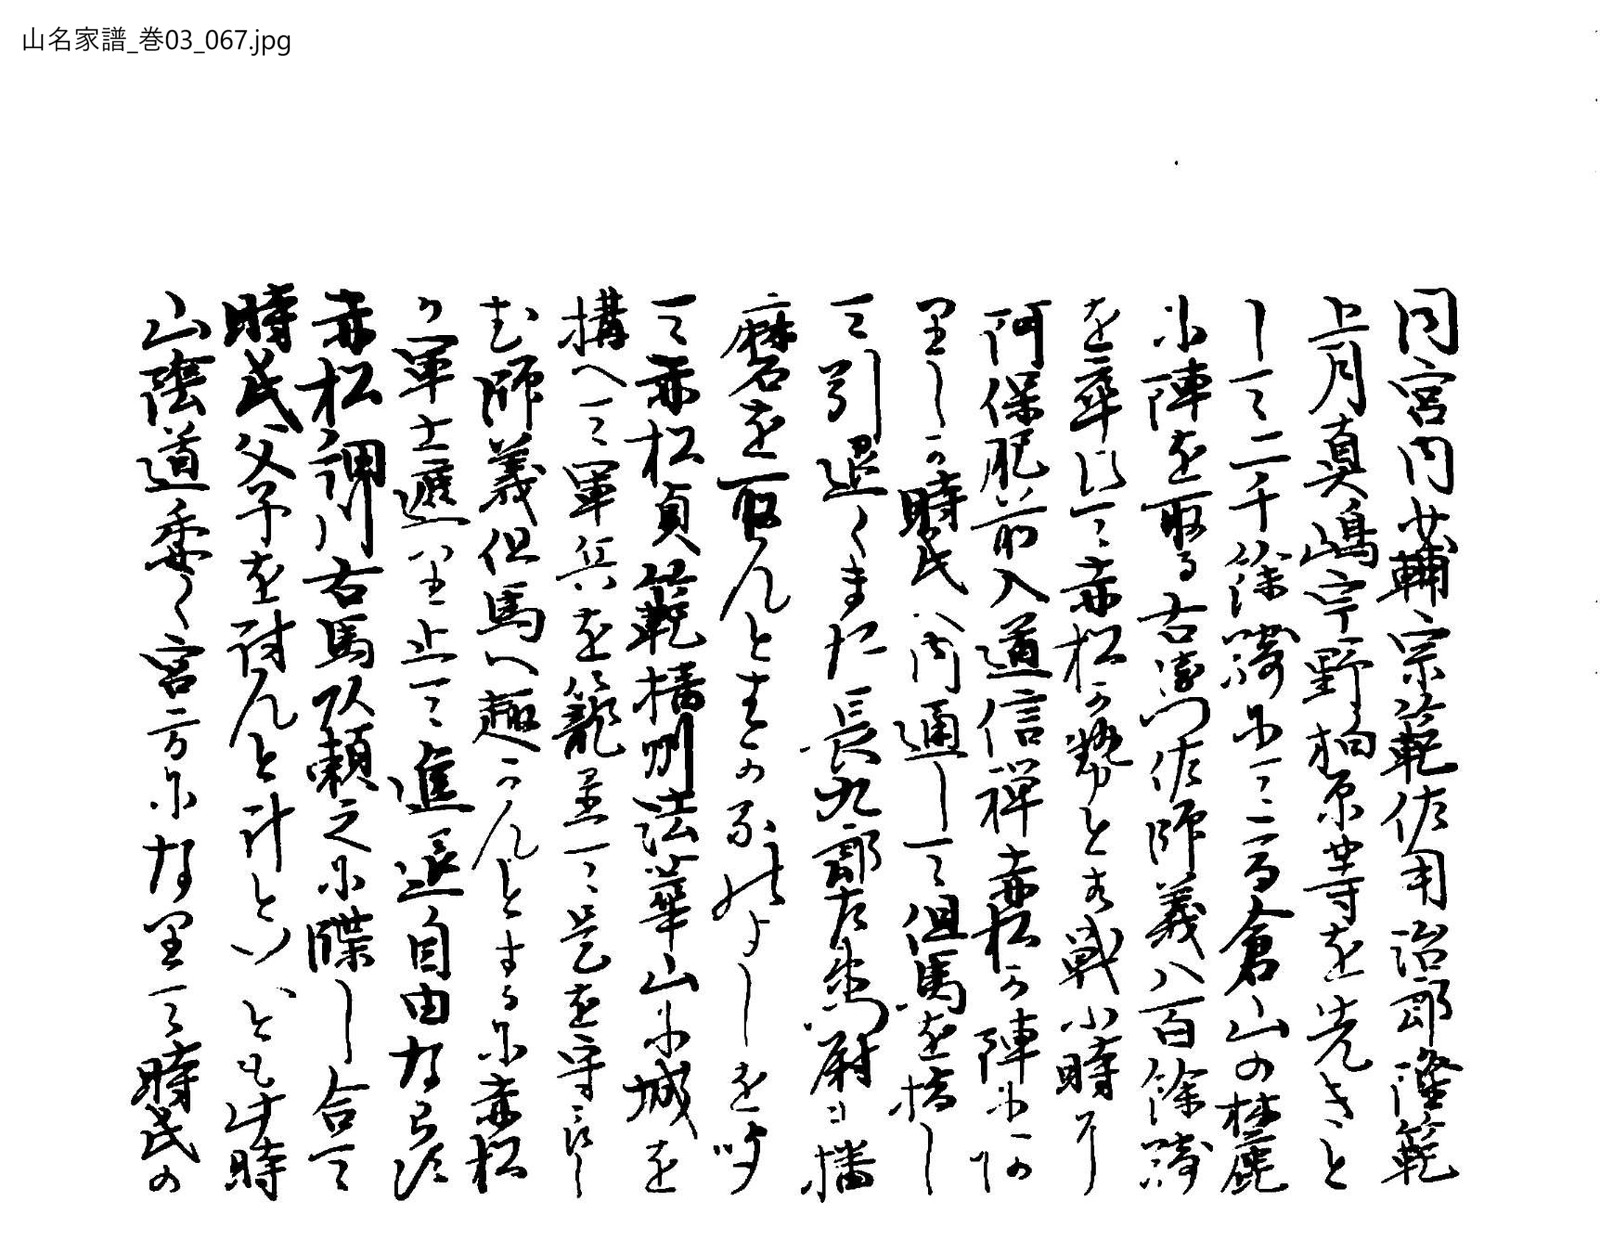 山名家譜_巻03_067.jpg
同宮内少輔宗範佐用治郎隆範
上月真嶋宇野柏原等を先きと
して二千余騎にて倉山の麓
に陣を取る右衛門佐師義八百余騎
を率して赤松か勢と戦小時
阿保肥前入道信禅赤松か陣に
りしか時氏へ内通して但馬を指し
て引退くまた長九郎左衛門尉ヨ播
磨を取んとするのよしを
て赤松貞範播州法華山に城を
構へて軍兵を籠置て是を守
む師義但馬へ趣かんとするに赤松
か軍士遮り止て進退自由ならす
赤松調川右馬頼之に牒し合て
時氏父子を討んと計といへとも此時
山陰道悉く宮方になりて時氏の